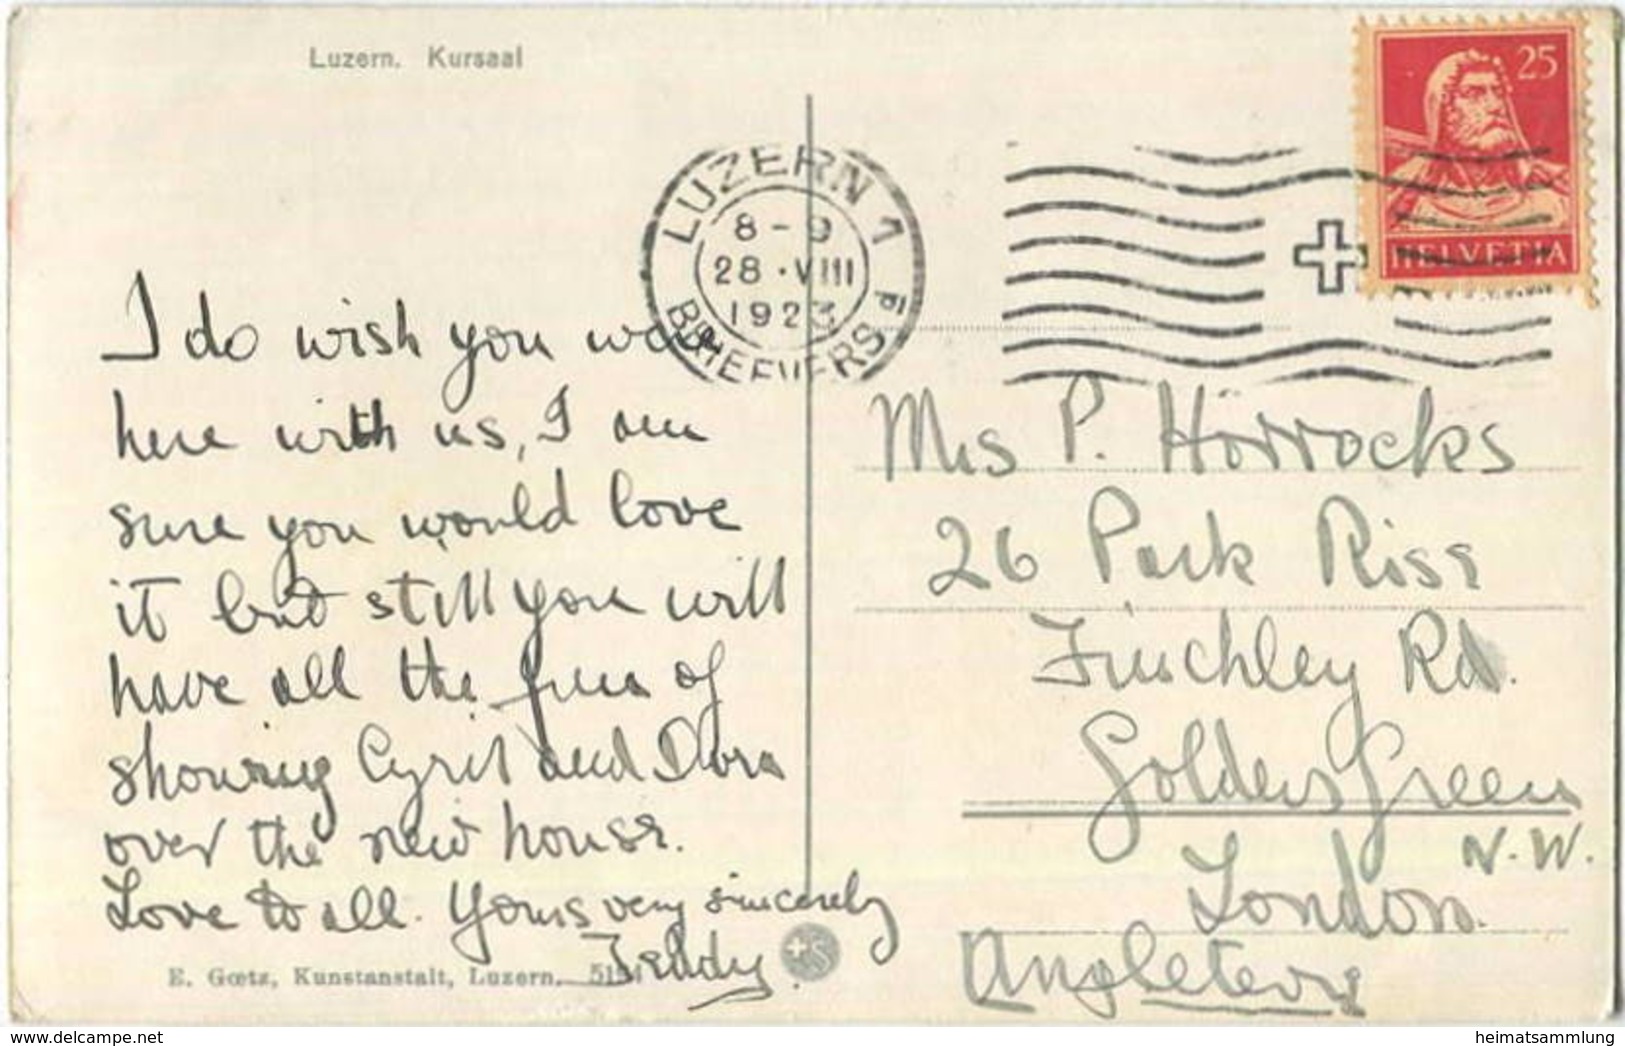 Luzern. Kursaal
25
HELVETIA
LUZERN 1
8-9
28·VIII
1923
BRIEFVERS
I do wish you were
here with us, I am
sure you would love
it but still you will
have all the fun of
showing Cyril and Dora
over the new house.
Love to all. Yours very sincerely
Teddy.
E. Gœtz, Kunstanstalt, Luzern. 5154
Mrs P. Horrocks
26 Park Rise
Finchley Rd.
Golders Green
N.W.
London.
Angleterre
www.delcampe.net
heimatsammlung